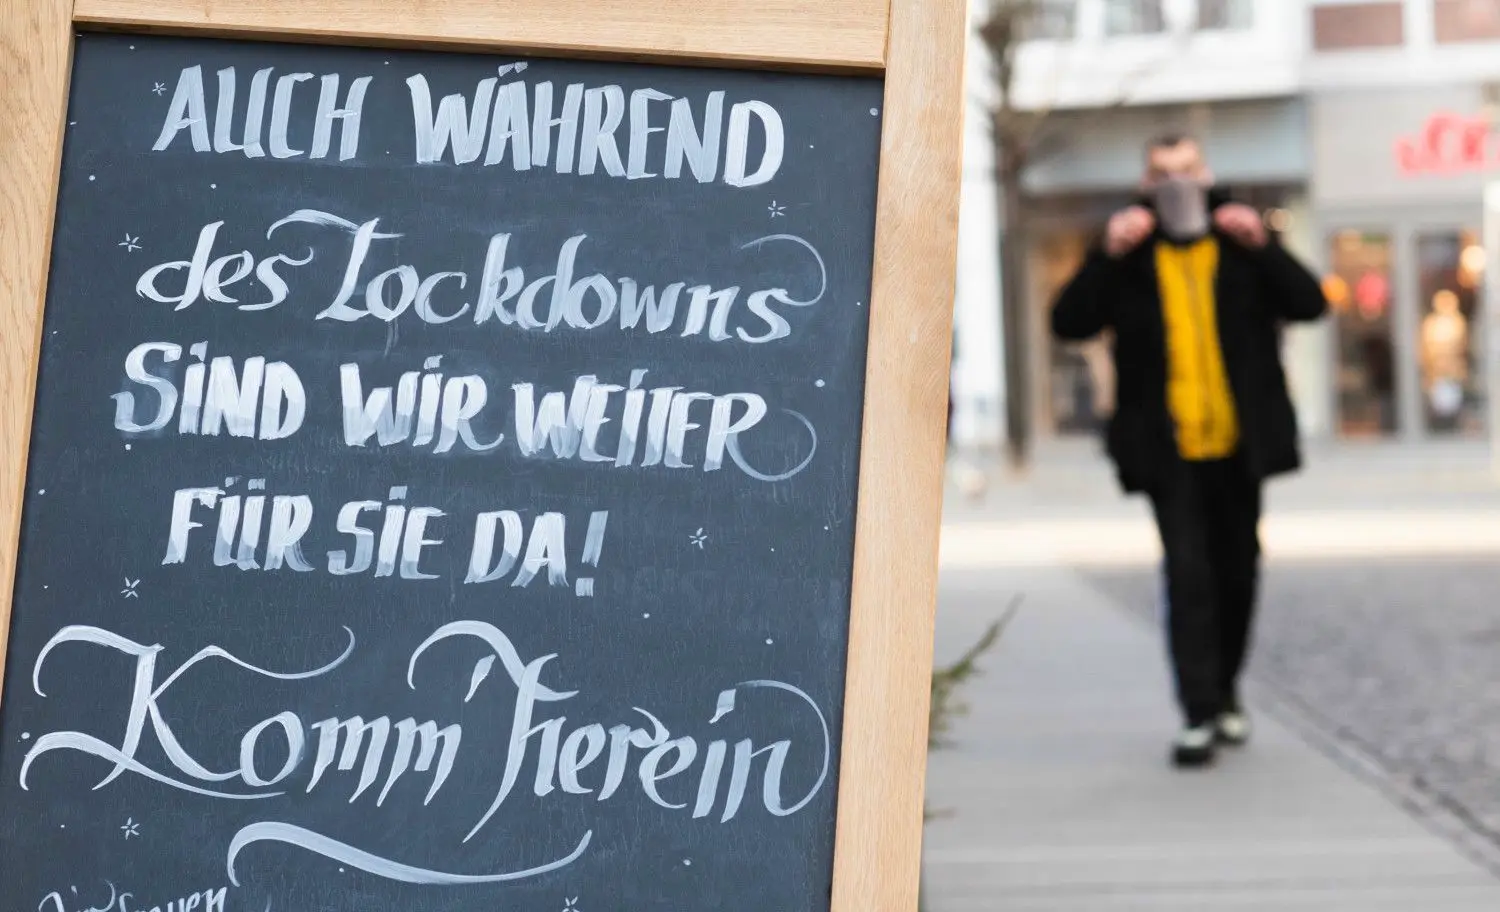 AUCH WÄHREND
des Lockdowns
SIND WIR WEITER
FÜR SIE DA!
Komm' herein